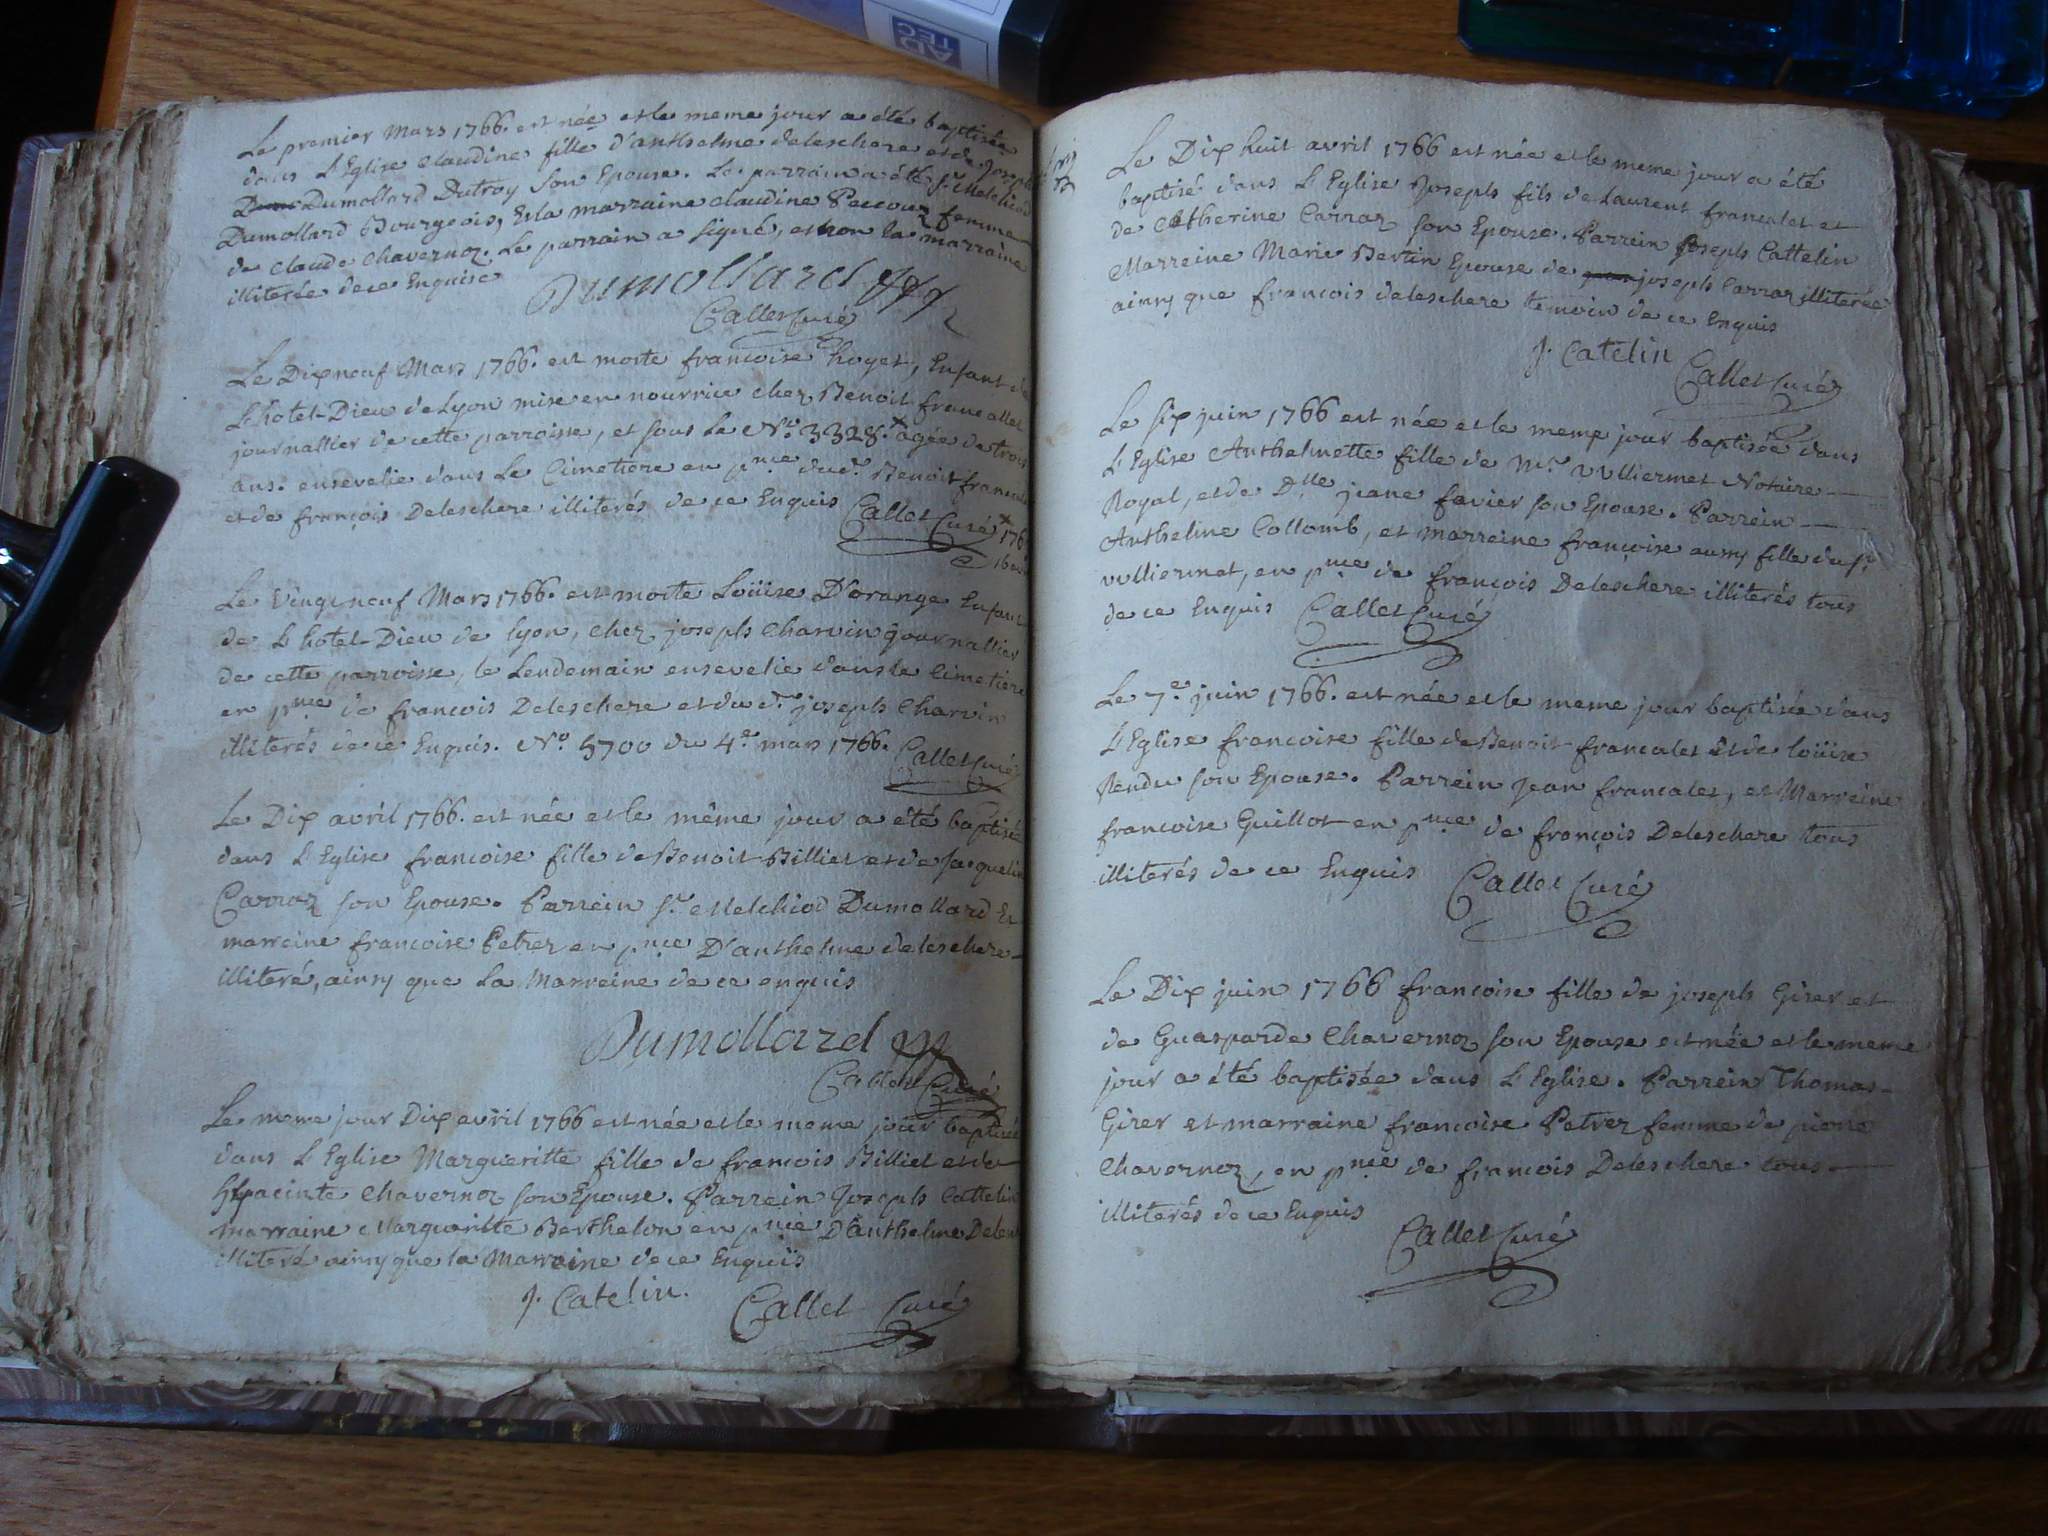 AD
TEC
Le premier Mars 1766. est née et le meme jour a été baptisée
dans L'Eglise Claudine fille d'anthelme deleschere et de Joseph
Dumollard Dutroy Son Epouse. Le parrain a été Sr. Melchiod
Dumollard Bourgeois, Et la marraine claudine Peccouz femme
de Claude Chavernoz. Le parrain a signé, et non la marraine
illiterée de ce Enquise
Dumollard
Callet Curé
Le Dix neuf Mars 1766. est morte francoise hoget, Enfant de
L'hotel-Dieu de Lyon mise en nourrice chez Benoit francallet
journallier de cette parroisse, et sous Le No. 3328. + agée de trois
ans. ensevelie dans Le Cimetiere en pnce dud. Benoit francalet
et de françois Deleschere illiterés de ce Enquis Callet Curé + 176
16
Le Vingt neuf Mars 1766. est morte Loüise D'orange Enfant
de L'hotel-Dieu de Lyon, chez joseph Charvin journallier
de cette parroisse, le Lendemain ensevelie dans le Cimetiere
en pnce de francois Deleschere et du d. joseph Charvin
illiterés de ce Enquis. No. 5700 du 4e. mars 1766. Callet Curé
Le Dix avril 1766. est née et le même jour a été baptisée
dans L'Eglise françoise fille de Benoit Billiet et de Jacqueline
Carroz son Epouse. Parrein Sr. Melchiod Dumollard Et
marreine francoise Petrez en pnce D'anthelme deleschere
illiteré, ainsy que La Marreine de ce enquis
Dumollard
Callet Curé
Le meme jour Dix avril 1766 est née et le meme jour baptisée
dans L'Eglise Margueritte fille de françois Billiet et de
Hyacinte Chavernoz son Epouse. Parrein Joseph Cattelin
marraine Margueritte Berthelon en pnce D'Anthelme Deles
illiteré ainsy que la Marraine de ce Enquis
J. Catelin.
Callet Curé
Le Dix huit avril 1766 est née et le meme jour a été
baptisé dans L'Eglise Joseph fils de Laurent francalet et
de Catherine Carraz son Epouse. Parrein Joseph Cattelin
Marreine Marie Bertin Epouse de joseph Carraz illiterée
ainsy que francois deleschere temoin de ce Enquis
J. Catelin
Callet Curé
Le six juin 1766 est née et le meme jour baptisée dans
L'Eglise Anthelmette fille de Mr. vulliermet Notaire
Royal, et de Dlle jeane favier son Epouse. Parrein
Anthelme Collomb, et marreine françoise aussy fille du Sr
vulliermet, en pnce de françois Deleschere illiterés tous
de ce Enquis Callet Curé
Le 7e. juin 1766. est née et le meme jour baptisée dans
L'Eglise francoise fille de Benoit francalet Et de loüise
Rendu son Epouse. Parrein Jean francalet, et Marreine
francoise Guillot en pnce de françois Deleschere tous
illiterés de ce Enquis Callet Curé
Le Dix juin 1766 francoise fille de joseph Girer et
de Guasparde Chavernoz son Epouse est née et le meme
jour a été baptisée dans L'Eglise. Parrein Thomas
Girer et marraine francoise Petrez femme de pierre
Chavernoz, en pnce de françois Deleschere tous
illiterés de ce Enquis
Callet Curé